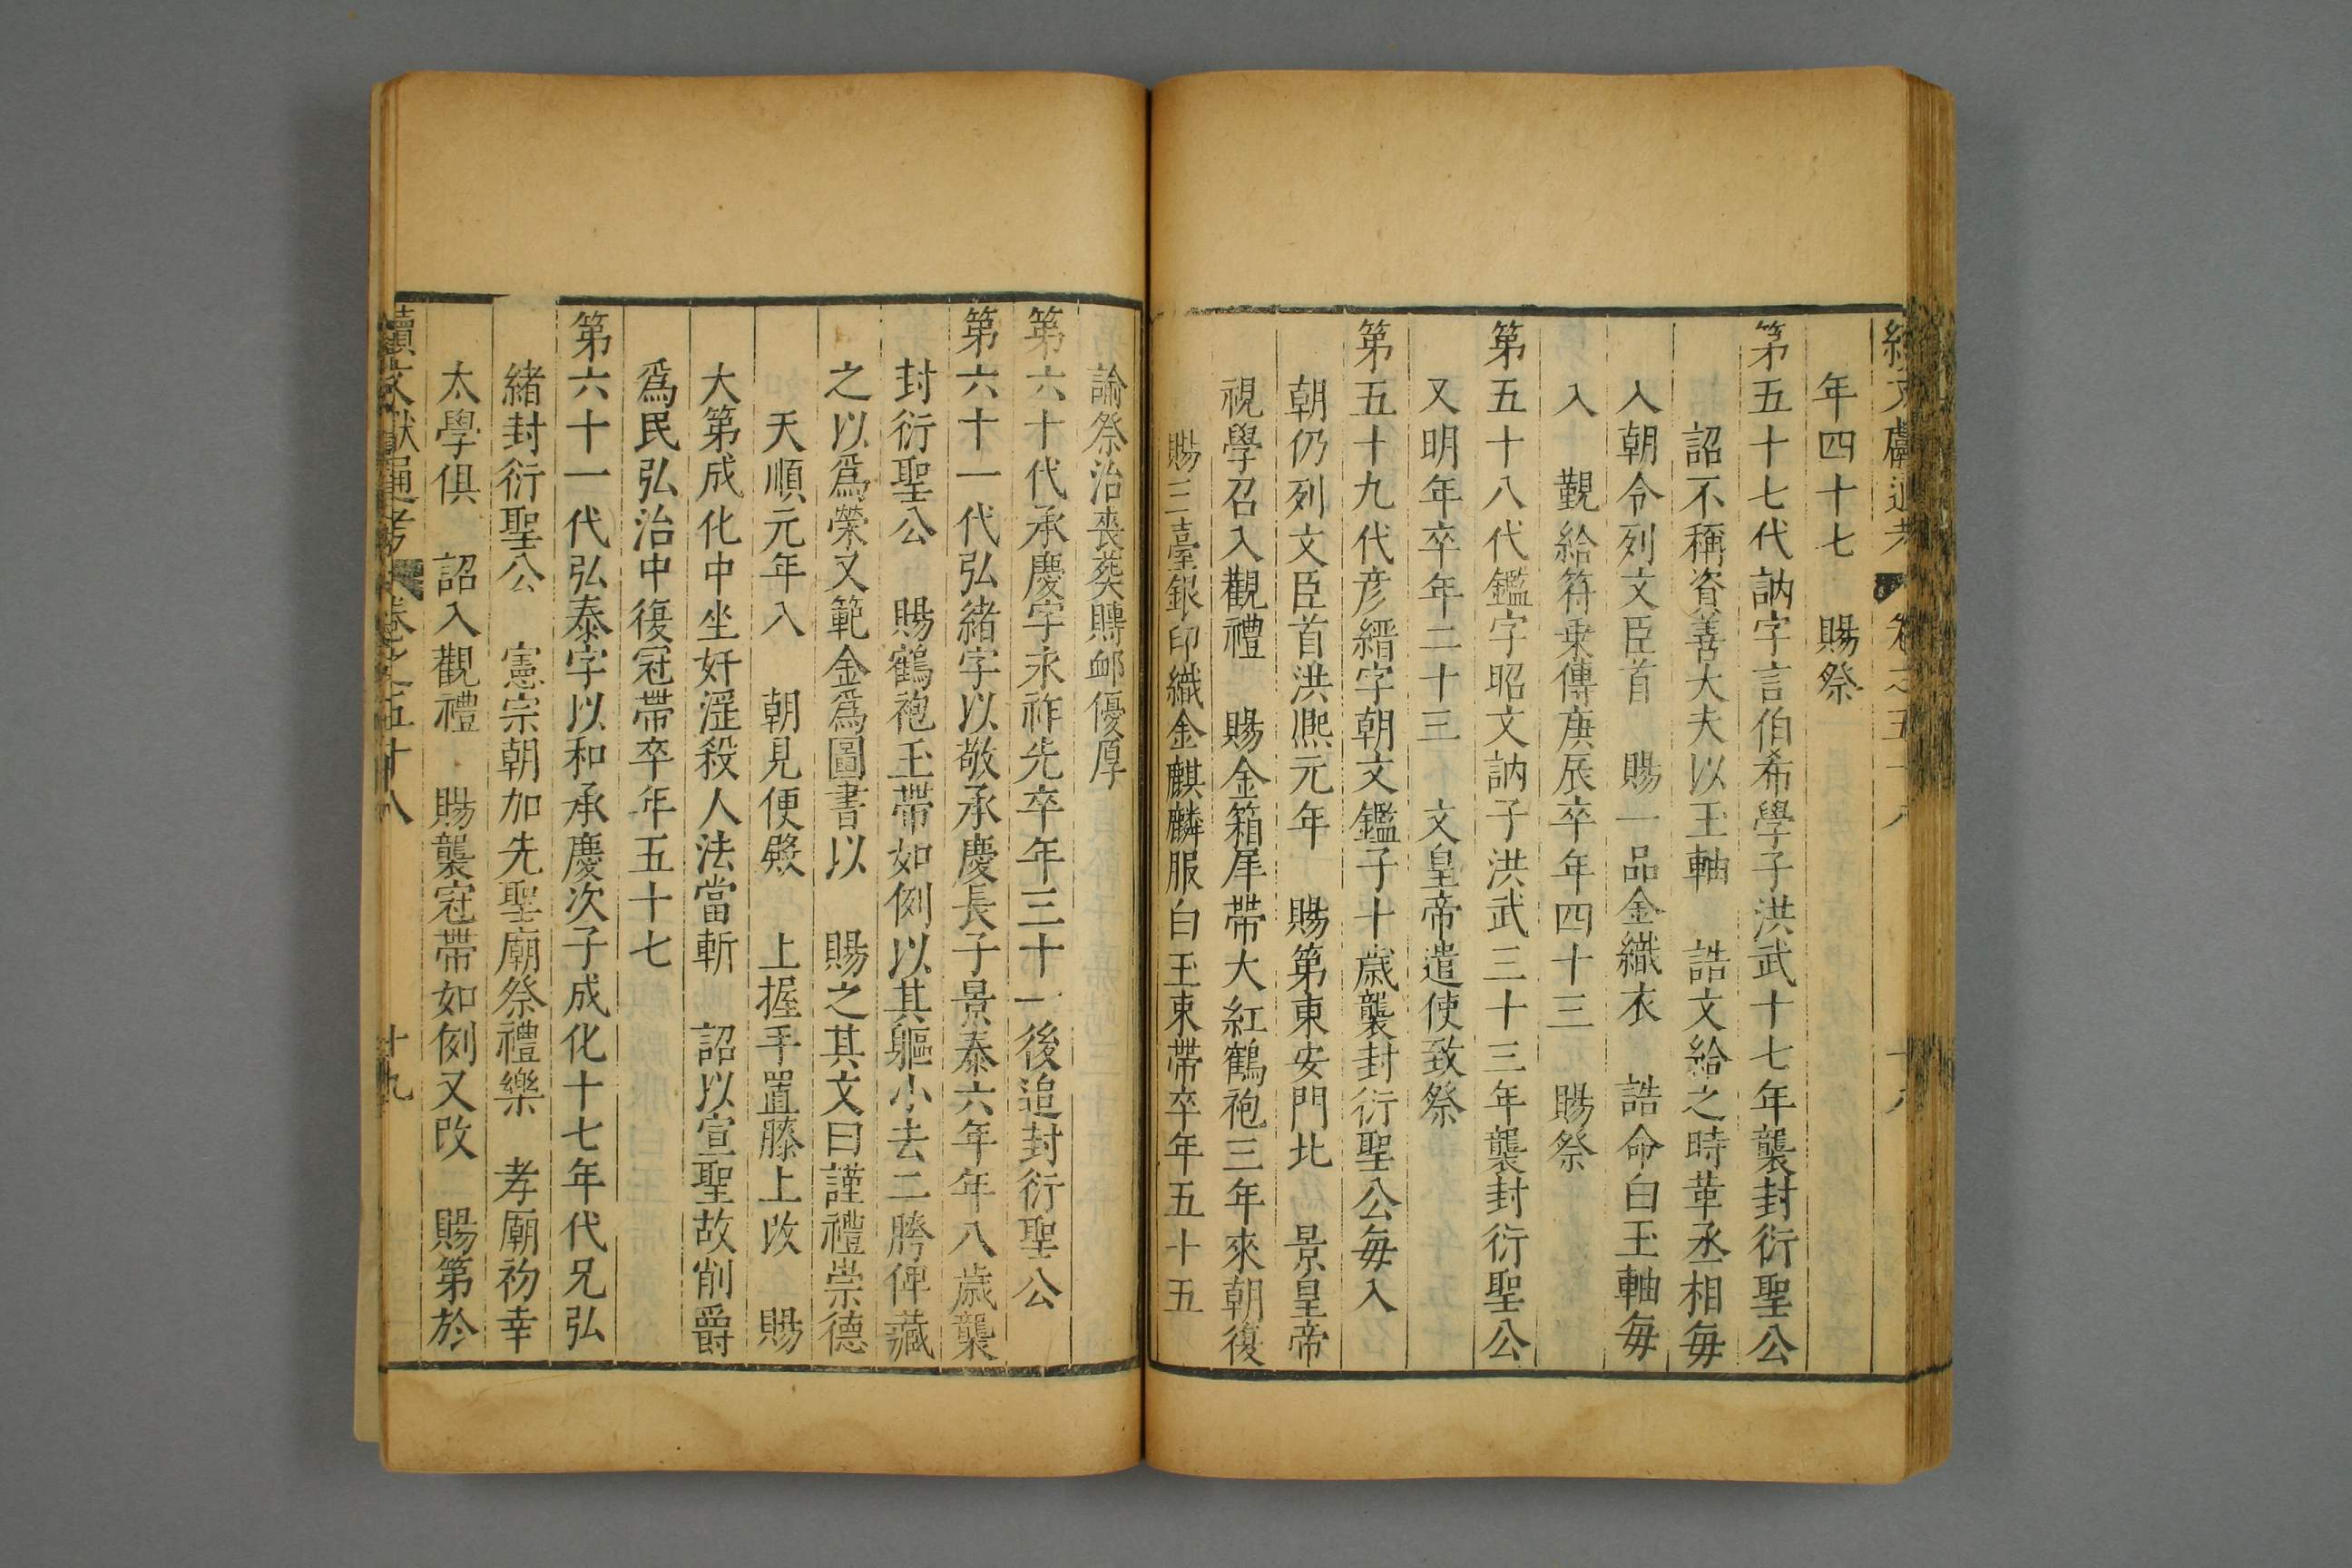 續文獻通考 卷之五十八
年四十七 賜祭
第五十七代訥字言伯希學子洪武十七年襲封衍聖公
詔不稱資善大夫以玉軸 誥文給之時革丞相每
入朝令列文臣首 賜一品金織衣 誥命白玉軸每
入 覲給符乗傳庚辰卒年四十三 賜祭
第五十八代鑑字昭文訥子洪武三十三年襲封衍聖公
又明年卒年二十三 文皇帝遣使致祭
第五十九代彦縉字朝文鑑子十歲襲封衍聖公每入
朝仍列文臣首洪熈元年 賜第東安門北 景皇帝
視學召入觀禮 賜金箱犀帶大紅鶴袍三年來朝復
賜三臺銀印織金麒麟服白玉束帶卒年五十五
諭祭治喪葬賻䘏優厚
第六十代承慶字永祚先卒年三十一後追封衍聖公
第六十一代弘緒字以敬承慶長子景泰六年年八歲襲
封衍聖公 賜鶴袍玉帶如例以其軀小去二胯俾藏
之以爲榮又範金爲圖書以 賜之其文曰謹禮崇德
天順元年入 朝見便㷩 上握手置膝上改 賜
大第成化中坐奸淫殺人法當斬 詔以宣聖故削爵
爲民弘治中復冠帶卒年五十七
第六十一代弘泰字以和承慶次子成化十七年代兄弘
緒封衍聖公 憲宗朝加先聖廟祭禮樂 孝廟初幸
太學俱 詔入觀禮 賜襲冠帶如例又改 賜第於
續文獻通考 卷之五十八 十九